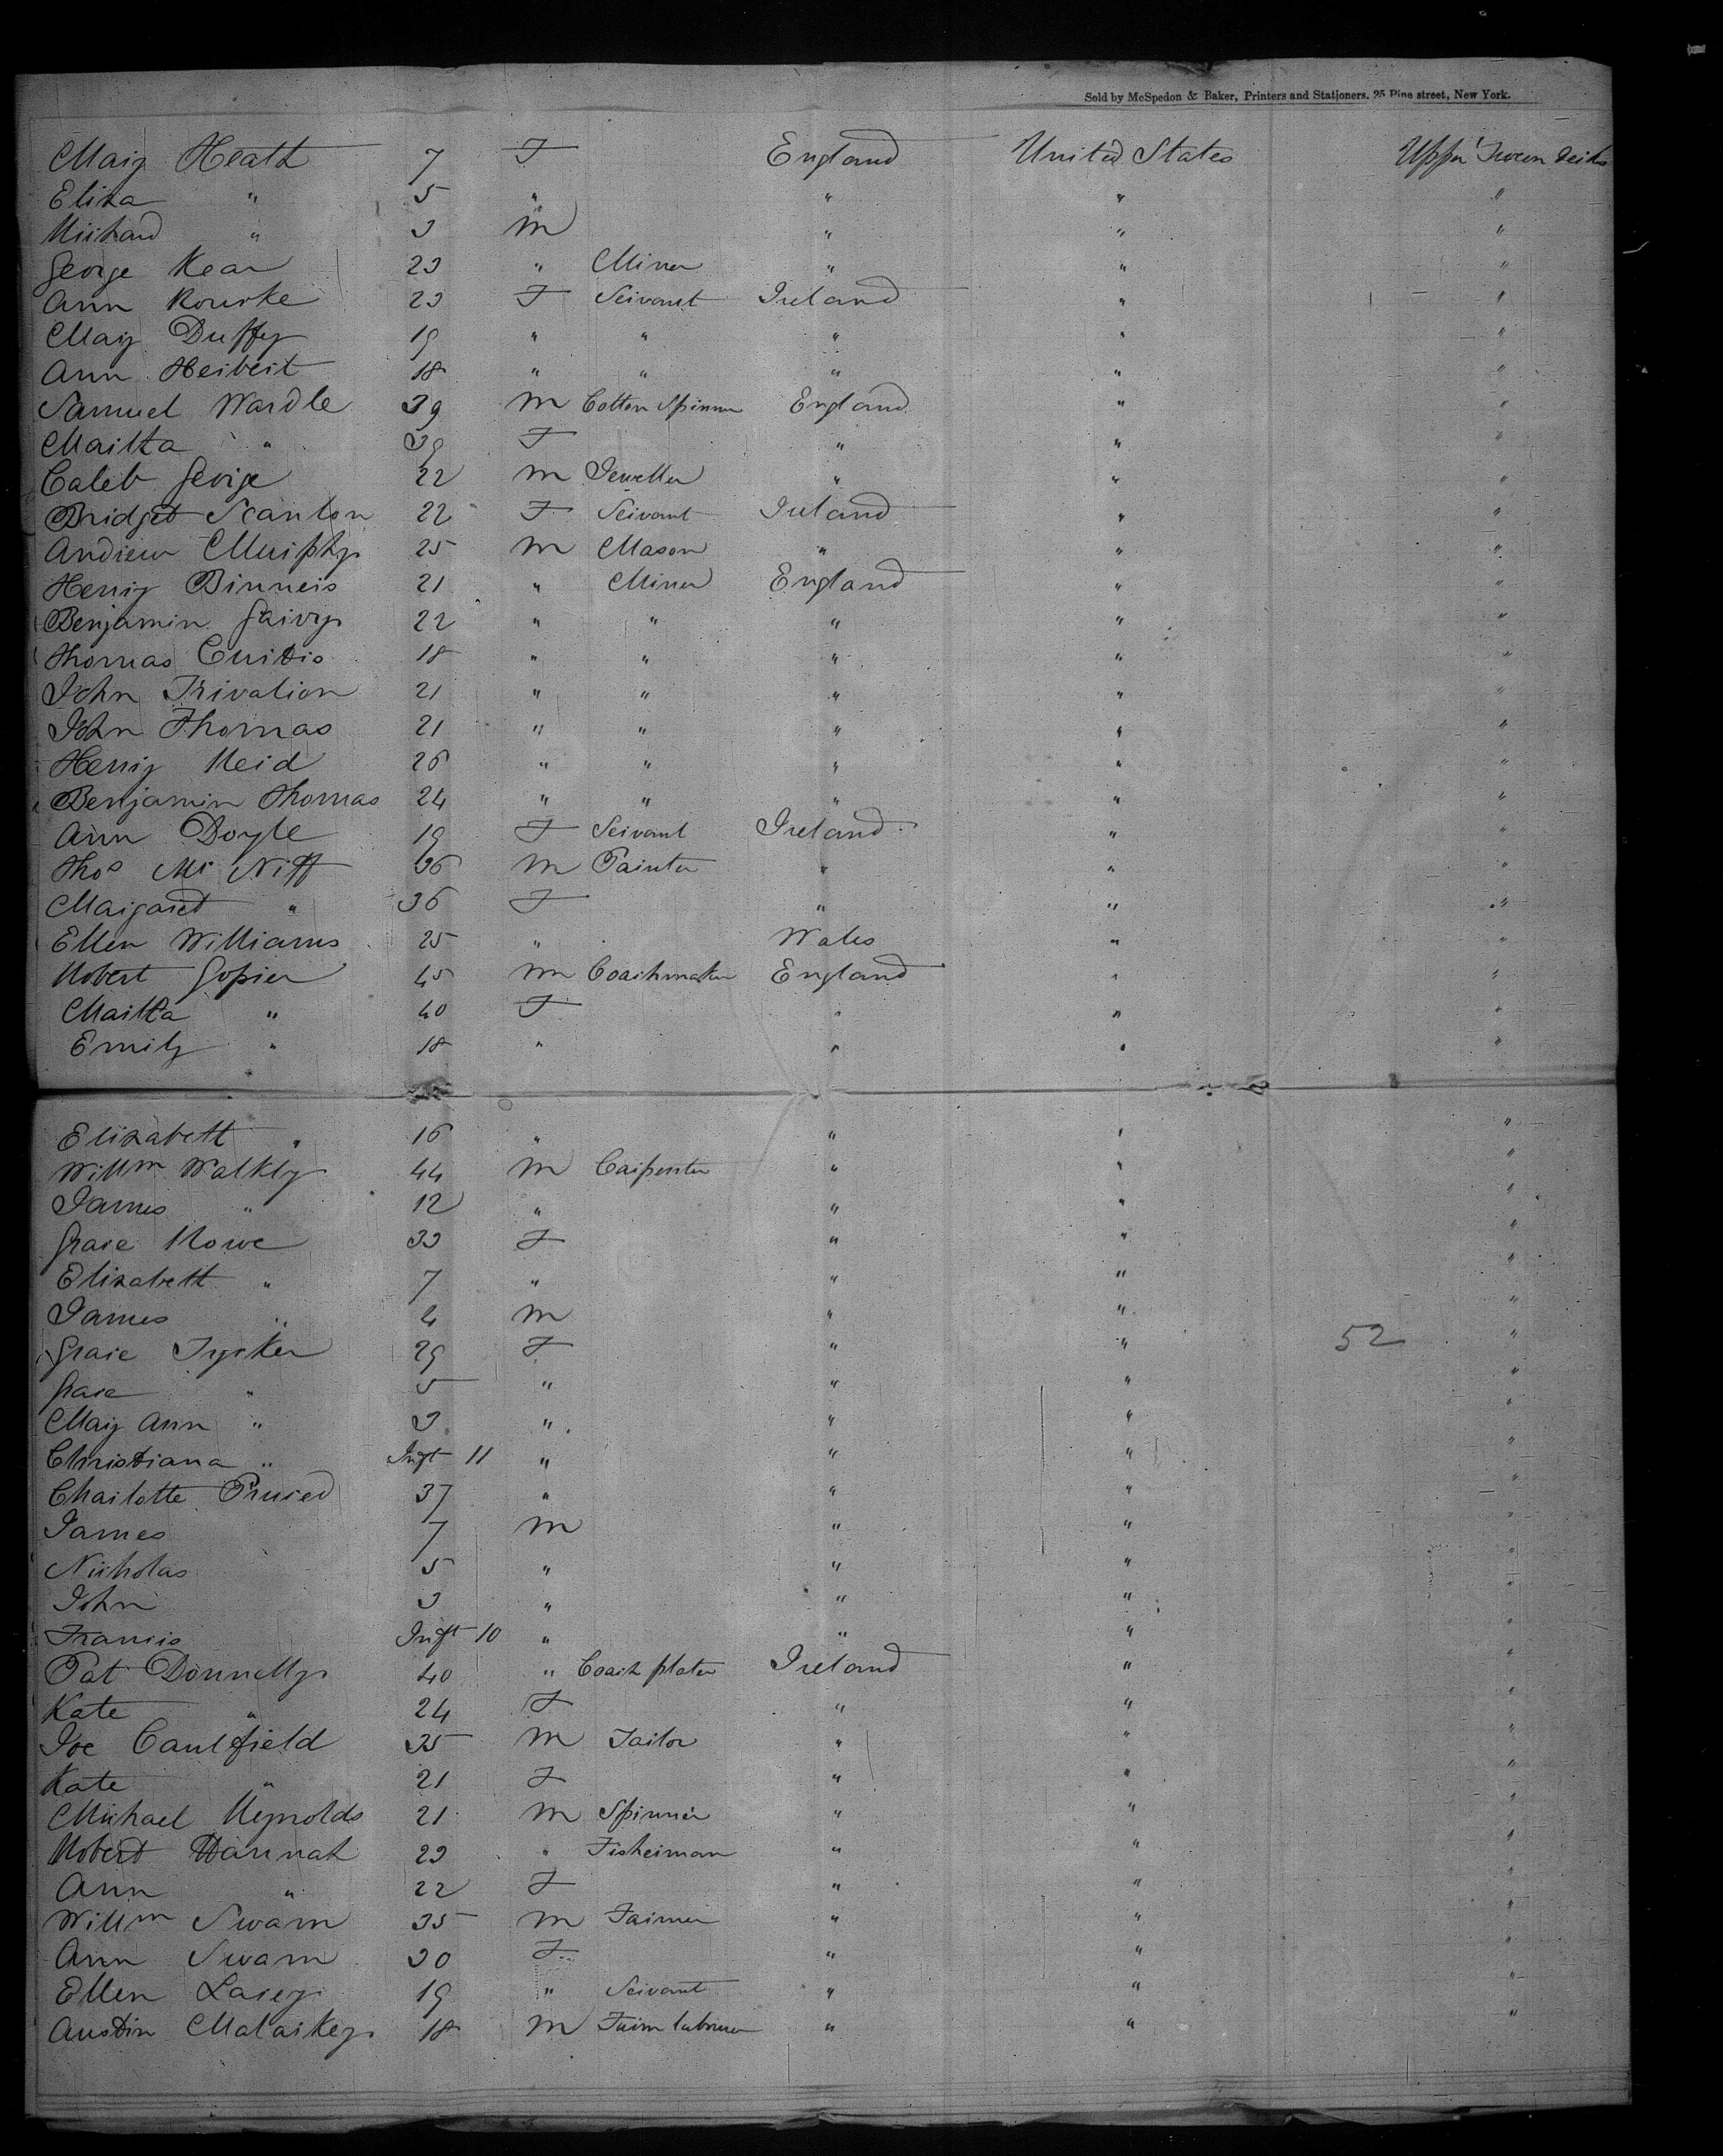 Sold by McSpedon & Baker, Printers and Stationers, 25 Pine street, New York.
Mary Heath 7 F England United States Upper Tween decks
Eliza " 5 " " " "
Richard " 3 m " " "
George Kear 23 " Miner " " "
Ann Rourke 23 F Servant Ireland " "
Mary Duffy 19 " " " " "
Ann Herbert 18 " " " " "
Samuel Wardle 39 m Cotton Spinner England " "
Martha " 39 F " " "
Caleb George 22 m Jeweller " " "
Bridget Scanlon 22 F Servant Ireland " "
Andrew Murphy 25 m Mason " " "
Henry Binneis 21 " Miner England " "
Benjamin 22 " " " " "
Thomas Curtis 18 " " " " "
John Trivalion 21 " " " " "
John Thomas 21 " " " " "
Henry Reid 26 " " " " "
Benjamin Thomas 24 " " " " "
Ann Doyle 19 F Servant Ireland " "
Thos Mc Niff 36 m Painter " " "
Margaret " 36 F " " "
Ellen Williams 25 " Wales " "
Robert 45 m Coachmaker England " "
Martha " 40 F " " "
Emily " 18 " " " "
Elizabeth " 16 " " " "
Willm Walkly 44 m Carpenter " " "
James " 12 " " " "
Grace Rowe 33 F " " "
Elizabeth " 7 " " " "
James " 4 m " " "
Grace 29 F " " 52 "
Grace " 5 " " " "
Mary Ann " 3 " " " "
Christiana " Inft 11 " " " "
Charlotte 37 " " " "
James 7 m " " "
Nicholas 5 " " " "
John 3 " " " "
Francis Inft 10 " " " "
Pat Donnelly 40 " Coach plater Ireland " "
Kate " 24 F " " "
Joe Caulfield 35 m Tailor " " "
Kate " 21 F " " "
Michael Reynolds 21 m Spinner " " "
Robert Hannah 23 " Fisherman " " "
Ann " 22 F " " "
Willm Swam 35 m Farmer " " "
Ann Swam 30 F " " "
Ellen Lacey 19 " Servant " " "
Austin Malarkey 18 m Farm labourer " " "